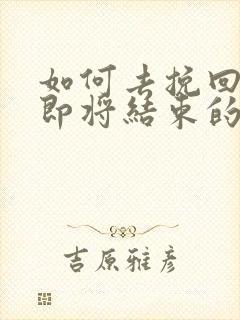 如何去挽回
即将结束的
吉原雅彦